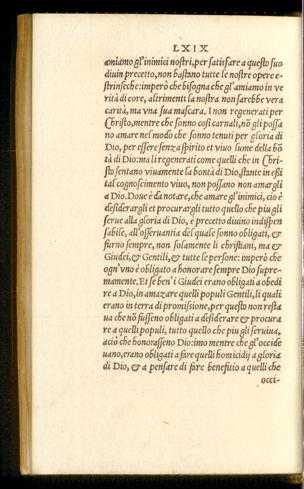 LXIX
amiamo gl'inimici nostri, per satisfare a questo suo
diuin precetto, non bastano tutte le nostre opere e-
strinseche: imperò che bisogna che gl'amiamo in ve
rità di core, altrimenti la nostra non sarebbe vera
carità, ma vna sua mascara. I non regenerati per
Christo, mentre che sonno cosi carnali, nõ gli possa
no amare nel modo che sonno tenuti per gloria di
Dio, per essere senza spirito et viuo lume della bõ
tà di Dio: ma li regenerati come quelli che in Chri-
sto sentano viuamente la bontà di Dio, stante in eßi
tal cognoscimento viuo, non possano non amargli
a Dio. Doue è da notare, che amare gl'inimici, cio è
desiderargli et procurargli tutto quello che piu gli
serue alla gloria di Dio, è precetto diuino indispen
sabile, all'osseruantia del quale sonno obligati, &
furno sempre, non solamente li christiani, ma &
Giudei, & Gentili, & tutte le persone: imperò che
ogn'vno è obligato a honorare sempre Dio supre-
mamente. Et se ben'i Giudei erano obligati a obedi
re a Dio, in amazare quelli populi Gentili, li quali
erano in terra di promissione, per questo non resta
ua che nõ fusseno obligati a desiderare & procura
re a quelli populi, tutto quello che piu gli seruiua,
acciò che honorasseno Dio: imo mentre che gl'occide
uano, erano obligati a fare quelli homicidij a gloria
di Dio, & a pensare di fare benefitio a quelli che
occi-